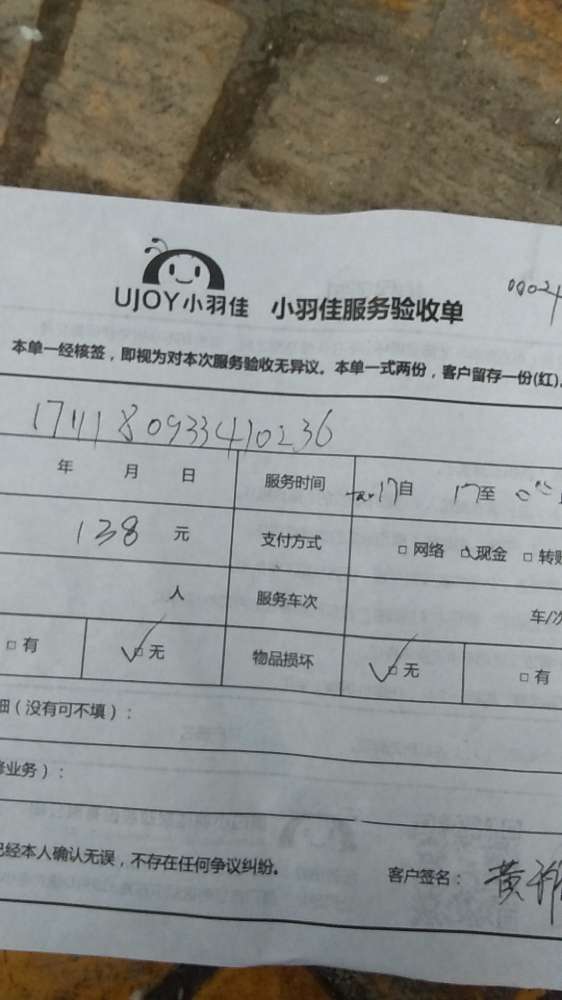 0024
UJOY小羽佳 小羽佳服务验收单
本单一经核签，即视为对本次服务验收无异议。本单一式两份，客户留存一份(红)
1711180933410236
年 月 日 服务时间 17自 17至
138 元 支付方式 □ 网络 □现金 □ 转账
人 服务车次 车/次
□ 有 ✓□ 无 物品损坏 ✓□ 无 □ 有
细（没有可不填）：
修业务）：
已经本人确认无误，不存在任何争议纠纷。 客户签名： 黄